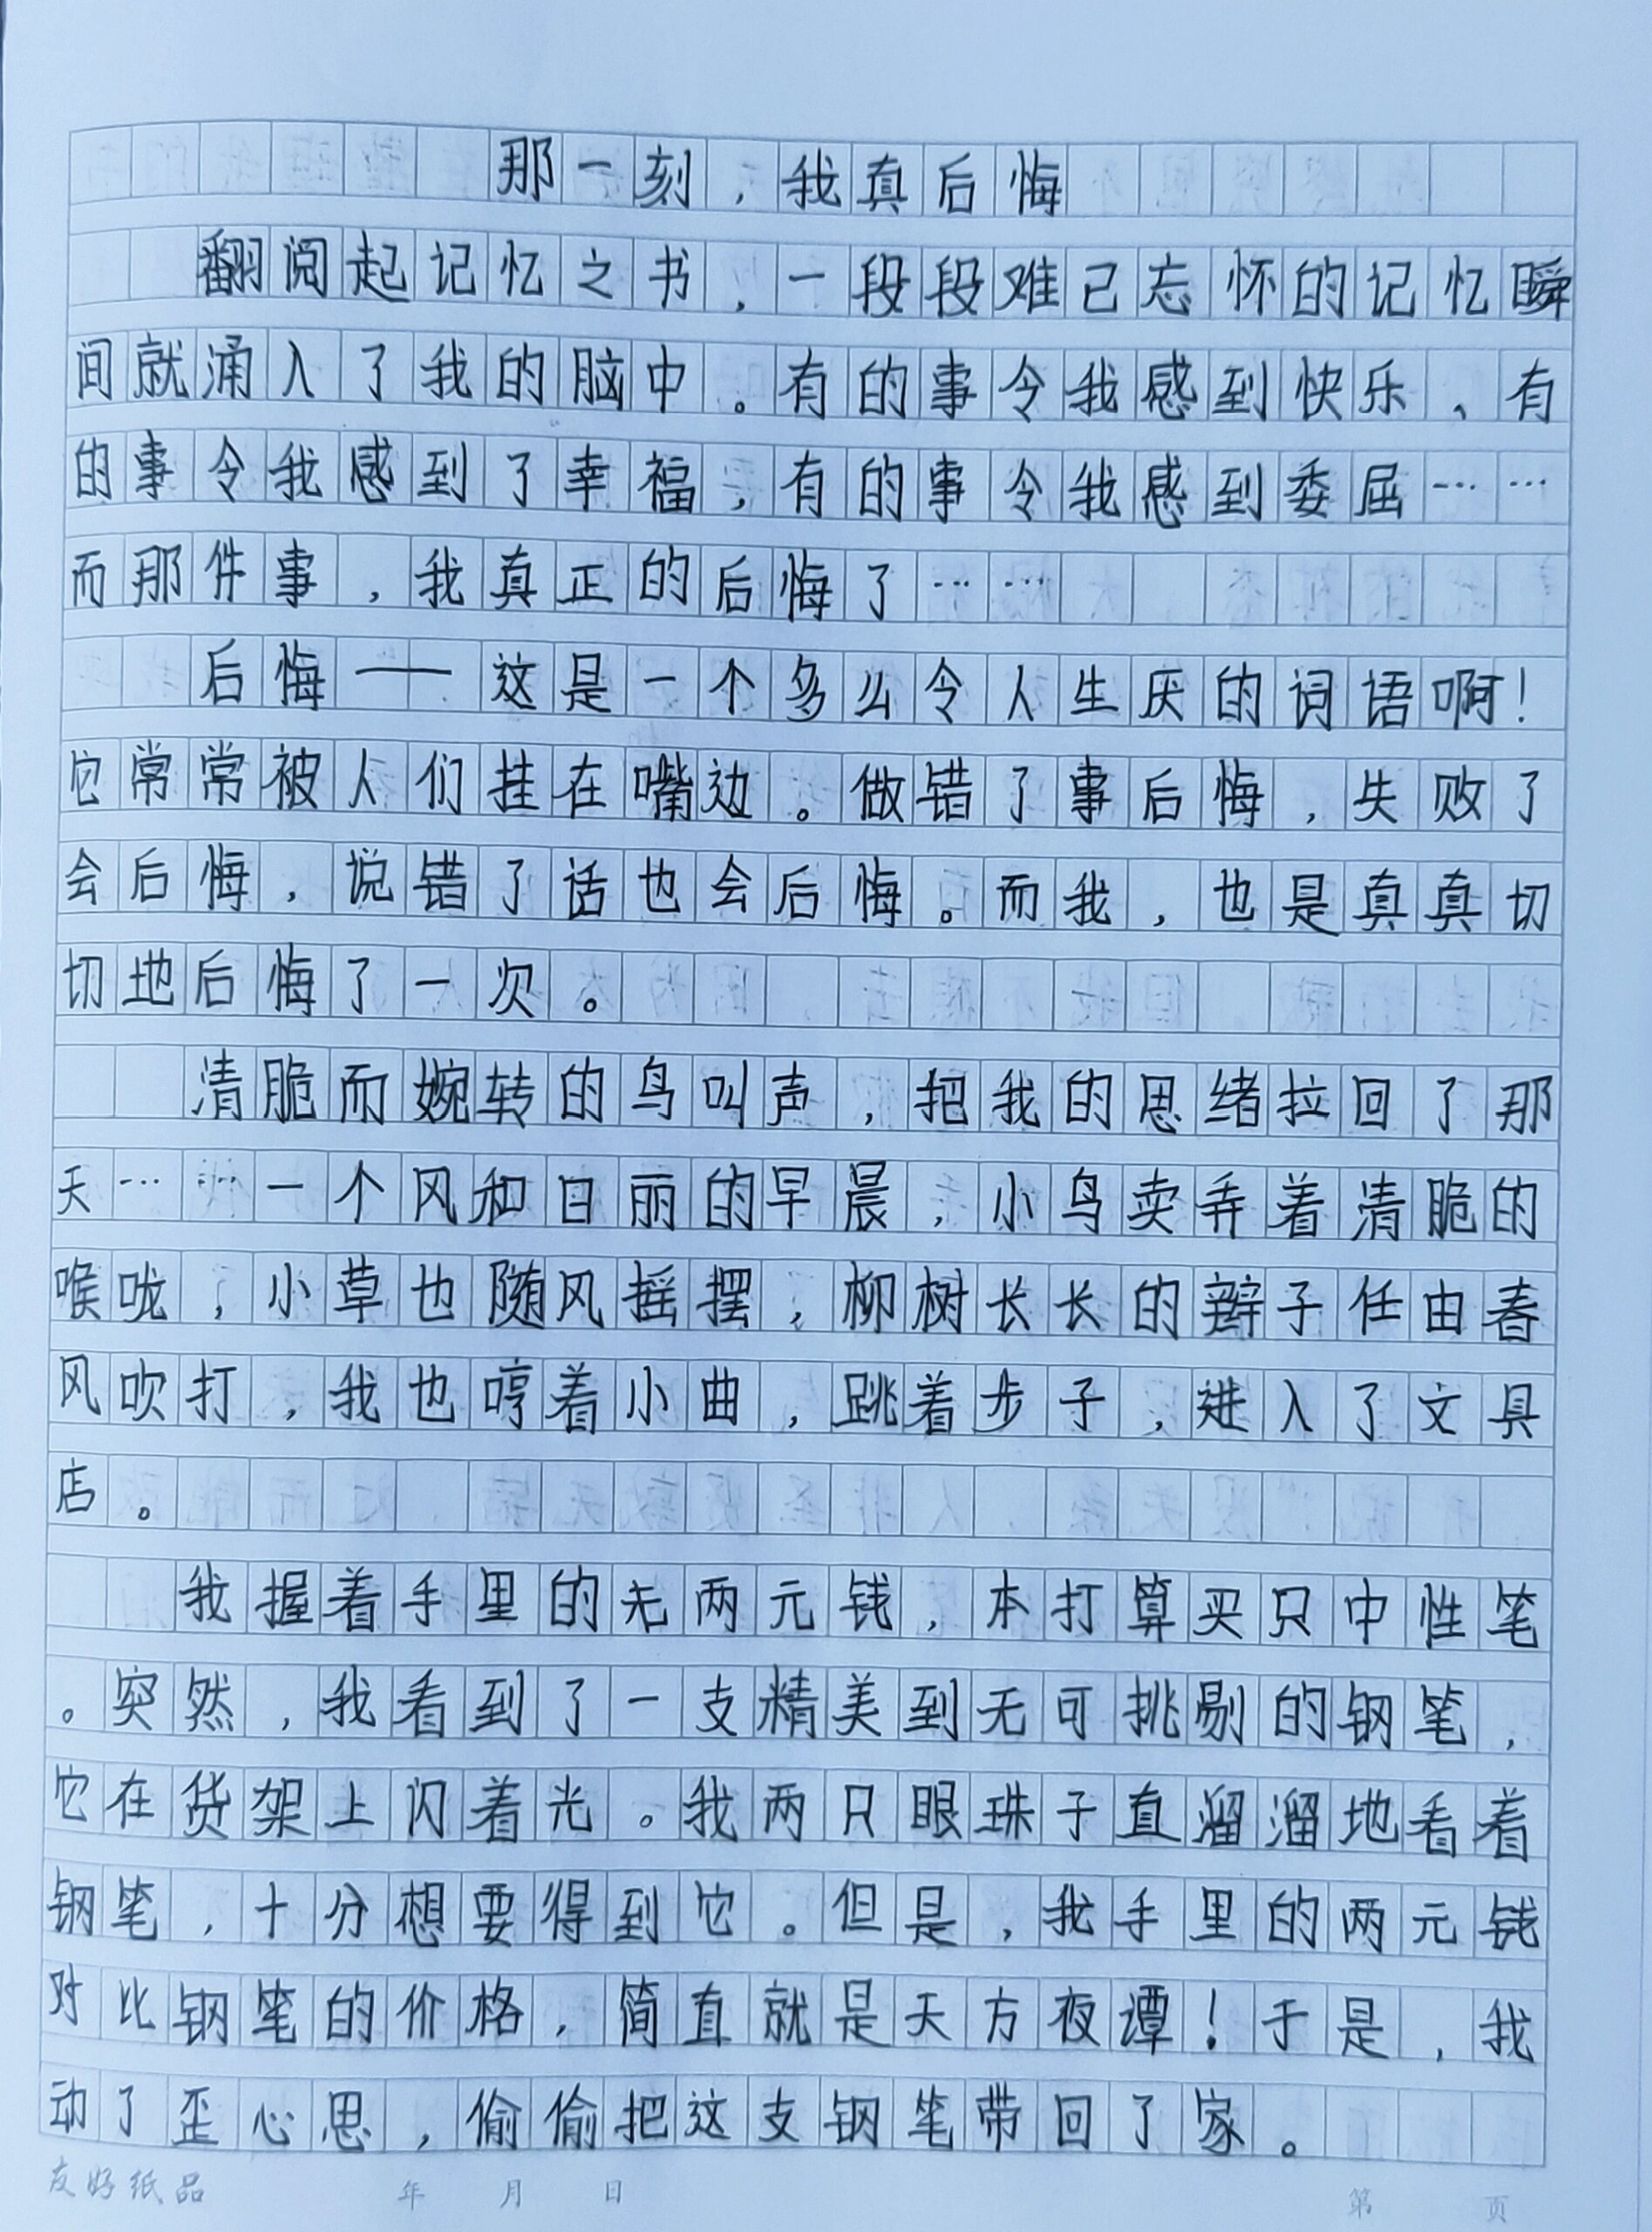 那一刻，我真后悔
翻阅起记忆之书，一段段难己忘怀的记忆瞬
间就涌入了我的脑中。有的事令我感到快乐、有
的事令我感到了幸福，有的事令我感到委屈……
而那件事，我真正的后悔了……
后悔——这是一个多么令人生厌的词语啊！
它常常被人们挂在嘴边。做错了事后悔，失败了
会后悔，说错了话也会后悔。而我，也是真真切
切地后悔了一次。
清脆而婉转的鸟叫声，把我的思绪拉回了那
天……一个风和日丽的早晨，小鸟卖弄着清脆的
喉咙，小草也随风摇摆，柳树长长的辫子任由春
风吹打，我也哼着小曲，跳着步子，进入了文具
店。
我握着手里的无两元钱，本打算买只中性笔
。突然，我看到了一支精美到无可挑剔的钢笔，
它在货架上闪着光。我两只眼珠子直溜溜地看着
钢笔，十分想要得到它。但是，我手里的两元钱
对比钢笔的价格，简直就是天方夜谭！于是，我
动了歪心思，偷偷把这支钢笔带回了家。
友好纸品 年 月 日 第 页